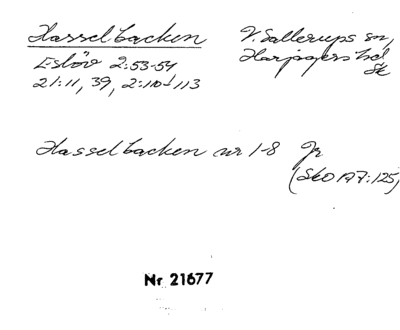 Hasselbacken V. Sallerups sn,
Eslöv 2:53-54 Harjagers hd
21:11, 39, 2:110-113 Sk
Hasselbacken nr 1-8 Jr
(SkO 197:125)
Nr 21677